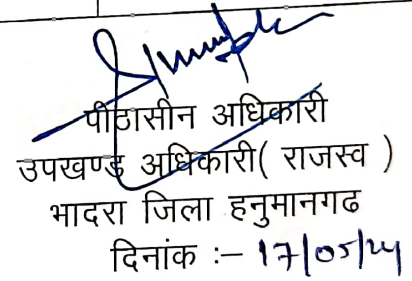 पीठासीन अधिकारी
उपखण्ड अधिकारी( राजस्व )
भादरा जिला हनुमानगढ
दिनांक :– 17/05/24